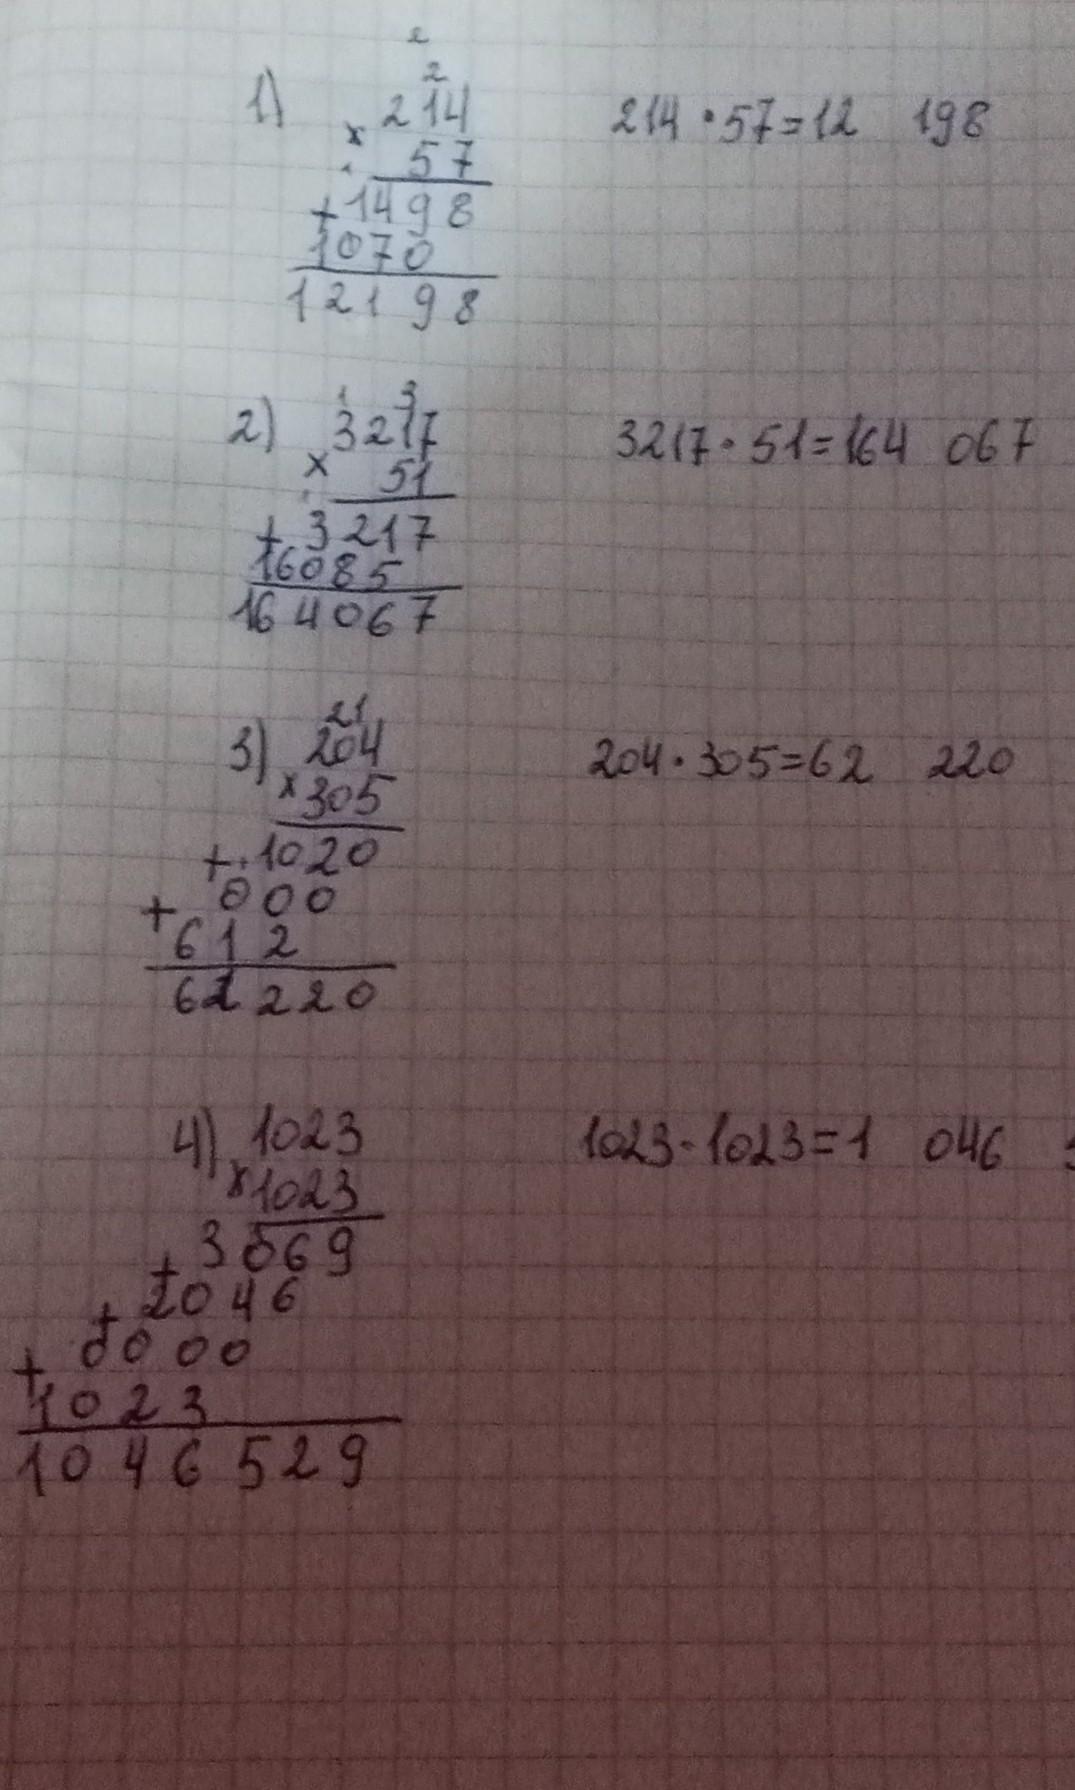 2
2
1) 214 214 · 57 = 12 198
× 57
+ 1498
1070
12198
1 3
2) 3217 3217 · 51 = 164 067
× 51
+ 3217
16085
164067
21
3) 204 204 · 305 = 62 220
× 305
+ 1020
+ 000
612
62220
4) 1023 1023 · 1023 = 1 046
× 1023
3069
+ 2046
+ 0000
+ 1023
1046529